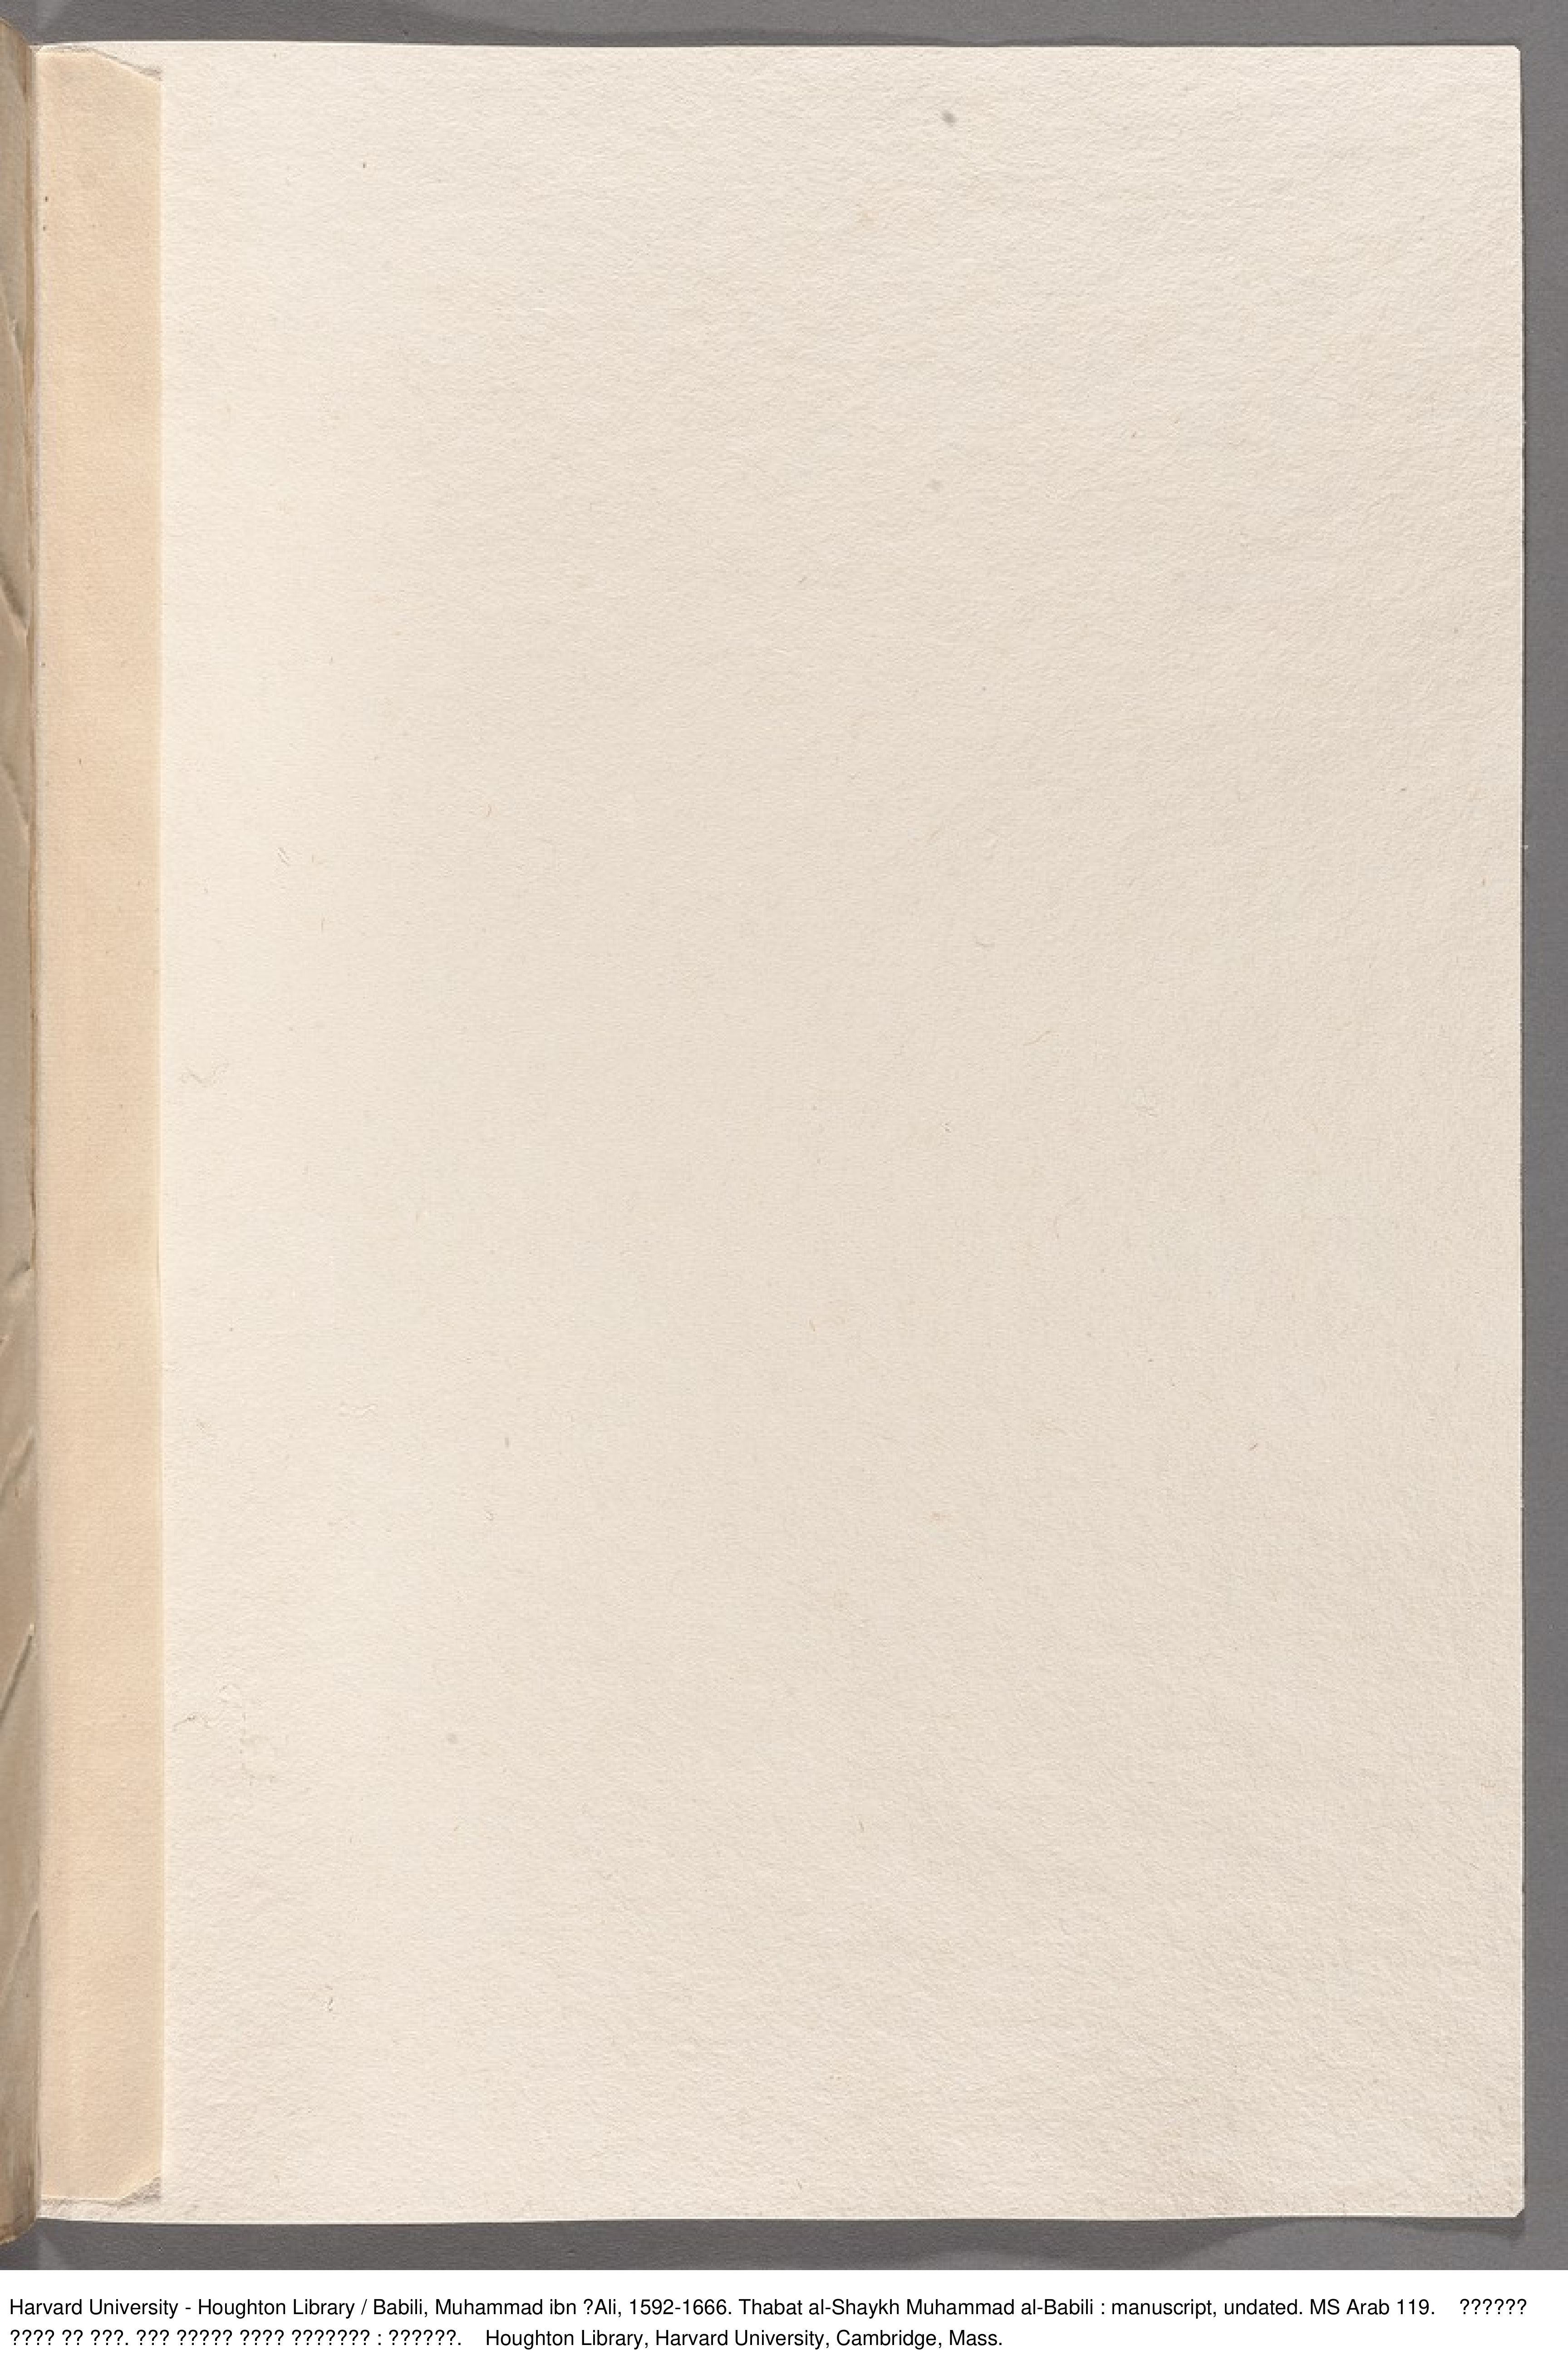 Harvard University - Houghton Library / Babili, Muhammad ibn ?Ali, 1592-1666. Thabat al-Shaykh Muhammad al-Babili : manuscript, undated. MS Arab 119. ??????
???? ?? ???. ??? ????? ???? ??????? : ??????. Houghton Library, Harvard University, Cambridge, Mass.